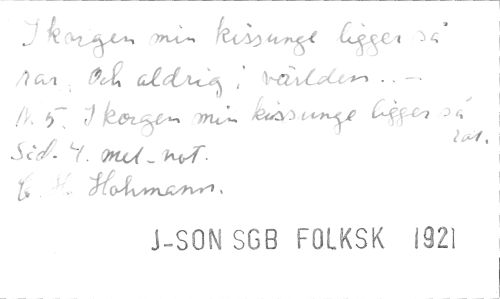 I korgen min kissunge ligger så
rar, och aldrig i världen..-
N. 5. I korgen min kissunge ligger så
rar.
Sid. 4. mel-not.
C. H. Hohmann.
J-SON SGB FOLKSK 1921